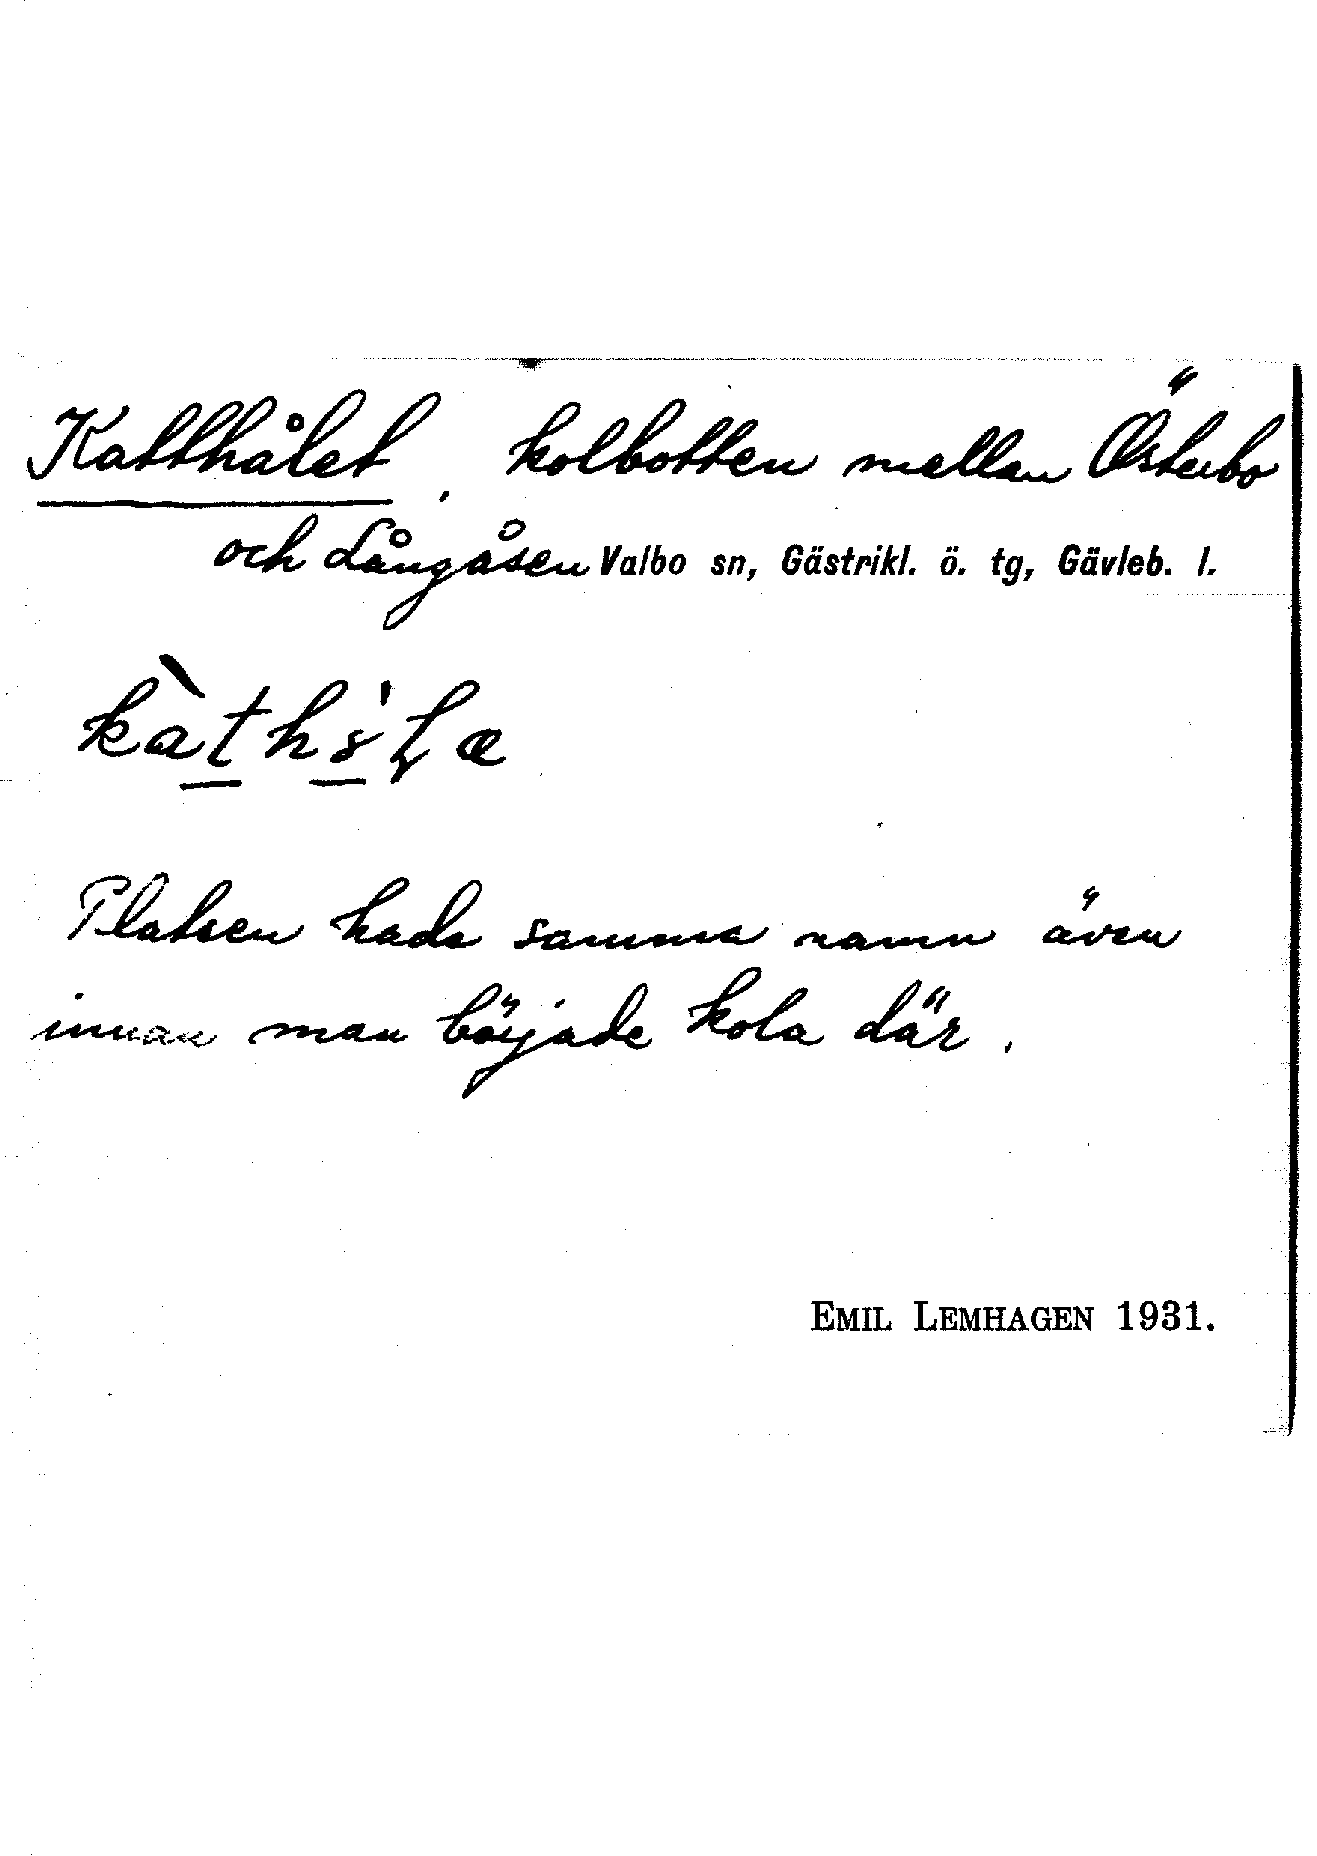 Katthålet, kolbotten mellan Österbo
och Långåsen Valbo sn, Gästrikl. ö. tg, Gävleb. l.
Platsen hade samma namn även
innan man började kola där.
EMIL LEMHAGEN 1931.